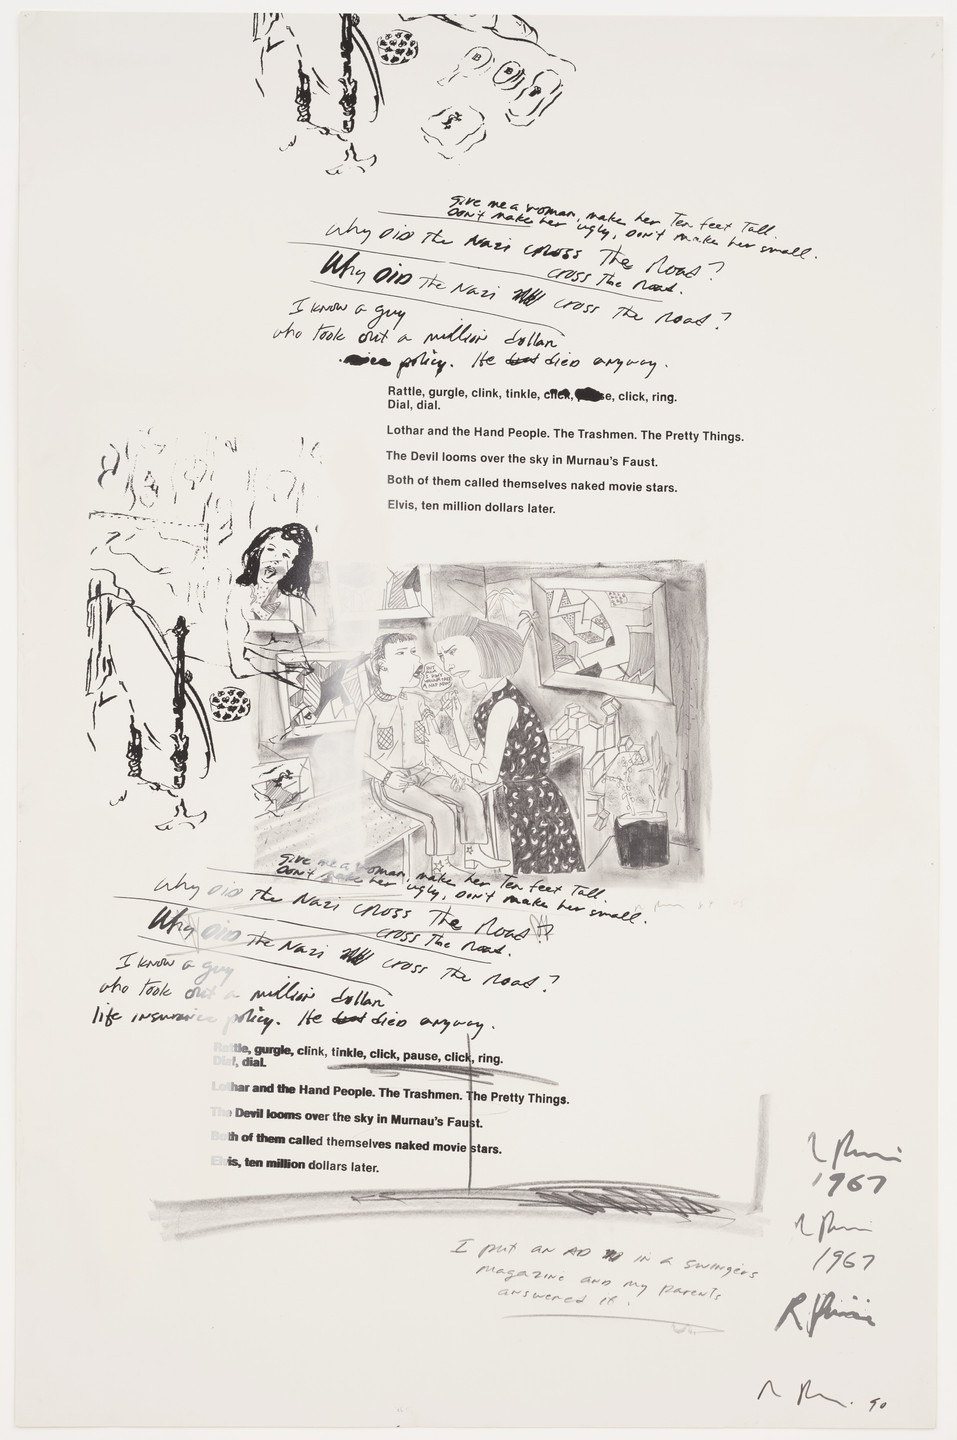 B B
Give me a woman, make her Ten feet Tall.
Don't make her ugly, Don't make her small.
Why DID the Nazi cross The Road?
cross The Road.
Why DID The Nazi cross The Road?
I know a guy
who took out a million dollar
policy. He died anyway.
Rattle, gurgle, clink, tinkle, click, se, click, ring.
Dial, dial.
Lothar and the Hand People. The Trashmen. The Pretty Things.
The Devil looms over the sky in Murnau's Faust.
Both of them called themselves naked movie stars.
Elvis, ten million dollars later.
Give me a woman, make her Ten feet Tall.
Don't make her ugly, Don't make her small.
Why DID the Nazi cross The Road?
cross The Road.
Why DID The Nazi cross The Road?
I know a guy
who took out a million dollar
life insurance policy. He died anyway.
Rattle, gurgle, clink, tinkle, click, pause, click, ring.
Dial, dial.
Lothar and the Hand People. The Trashmen. The Pretty Things.
The Devil looms over the sky in Murnau's Faust.
Both of them called themselves naked movie stars.
Elvis, ten million dollars later.
1967
1967
I put an AD in a swingers
magazine and my parents
answered it.
90